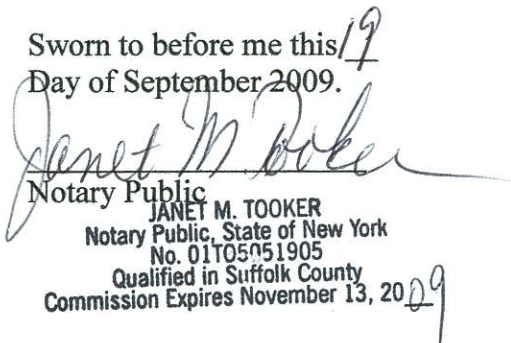 Sworn to before me this 19
Day of September 2009.
Janet M. Tooker
Notary Public
JANET M. TOOKER
Notary Public, State of New York
No. 01TO5051905
Qualified in Suffolk County
Commission Expires November 13, 2009